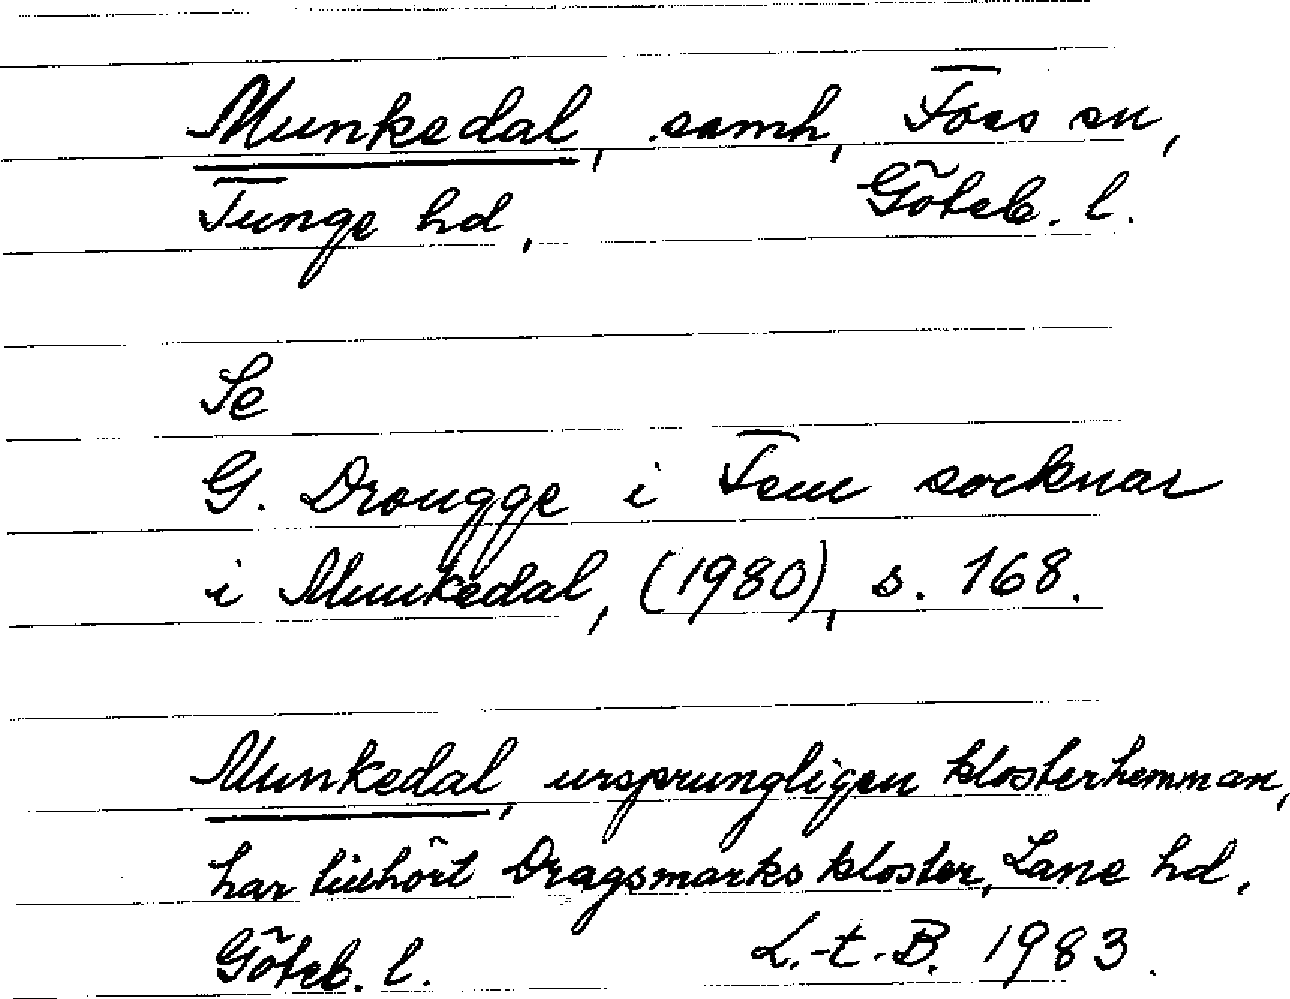 Munkedal, samh, Foss sn,
Tunge hd, Göteb. l.
Se
G. Drougge i Fem socknar
i Munkedal, (1980), s. 168.
Munkedal, ursprungligen klosterhemman,
har tillhört Dragsmarks kloster, Lane hd,
Göteb. l. L.-t.-B. 1983.